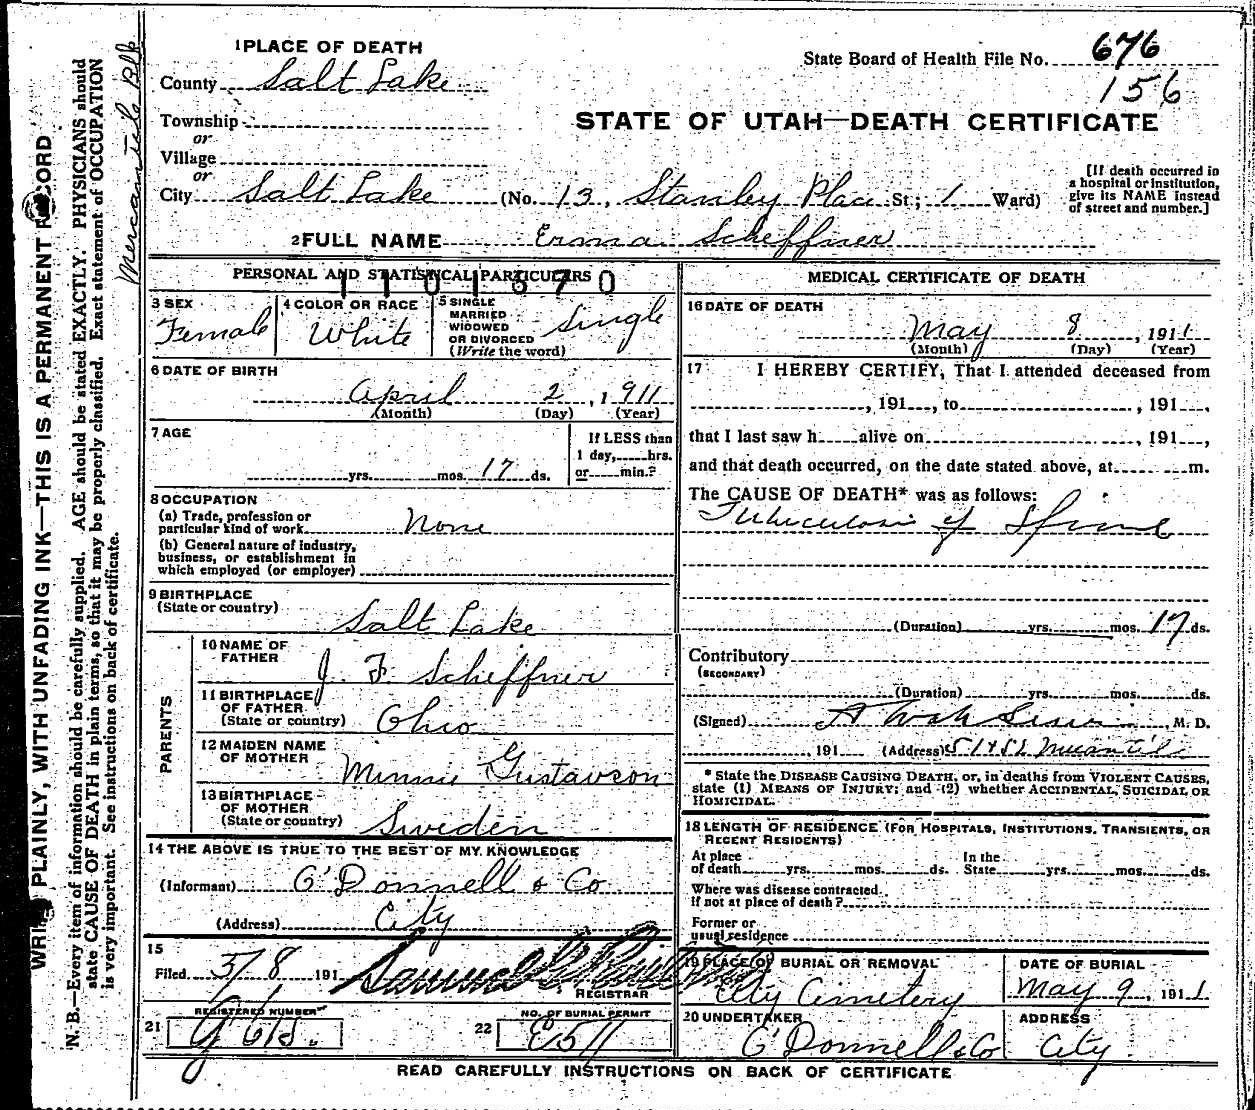 1 PLACE OF DEATH
County Salt Lake
Township
or
Village
or
City Salt Lake (No. 13, Stanley Place St; 1 Ward)
State Board of Health File No. 676
156
STATE OF UTAH—DEATH CERTIFICATE
[If death occurred in
a hospital or institution,
give its NAME instead
of street and number.]
2 FULL NAME Erma Scheffner
PERSONAL AND STATISTICAL PARTICULARS
1101570
3 SEX
Female
4 COLOR OR RACE
White
5 SINGLE
MARRIED
WIDOWED
OR DIVORCED
(Write the word)
Single
6 DATE OF BIRTH
April 2, 1911
(Month) (Day) (Year)
7 AGE
yrs. mos. 17 ds.
If LESS than
1 day, hrs.
or min.?
8 OCCUPATION
(a) Trade, profession or
particular kind of work None
(b) General nature of industry,
business, or establishment in
which employed (or employer)
9 BIRTHPLACE
(State or country)
Salt Lake
PARENTS
10 NAME OF
FATHER
J. F. Scheffner
11 BIRTHPLACE
OF FATHER
(State or country) Ohio
12 MAIDEN NAME
OF MOTHER
Minnie Gustavson
13 BIRTHPLACE
OF MOTHER
(State or country) Sweden
14 THE ABOVE IS TRUE TO THE BEST OF MY KNOWLEDGE
(Informant) O'Donnell & Co
(Address) City
15
Filed 5/8 191
REGISTRAR
21
REGISTERED NUMBER
22
NO. OF BURIAL PERMIT
E511
MEDICAL CERTIFICATE OF DEATH
16 DATE OF DEATH
May 8, 1911
(Month) (Day) (Year)
17 I HEREBY CERTIFY, That I attended deceased from
, 191 , to , 191 ,
that I last saw h alive on , 191 ,
and that death occurred, on the date stated above, at m.
The CAUSE OF DEATH* was as follows:
Tuberculosis of Spine
(Duration) yrs. mos. 17 ds.
Contributory
(SECONDARY)
(Duration) yrs. mos. ds.
(Signed) M. D.
, 191 (Address) Mercantile
* State the DISEASE CAUSING DEATH, or, in deaths from VIOLENT CAUSES,
state (1) MEANS OF INJURY; and (2) whether ACCIDENTAL, SUICIDAL OR
HOMICIDAL.
18 LENGTH OF RESIDENCE (FOR HOSPITALS, INSTITUTIONS, TRANSIENTS, OR
RECENT RESIDENTS)
At place
of death yrs. mos. ds.
In the
State yrs. mos. ds.
Where was disease contracted
If not at place of death?
Former or
usual residence
19 PLACE OF BURIAL OR REMOVAL
City Cemetery
DATE OF BURIAL
May 9, 1911
20 UNDERTAKER
O'Donnell & Co
ADDRESS
City
READ CAREFULLY INSTRUCTIONS ON BACK OF CERTIFICATE
WRITE PLAINLY, WITH UNFADING INK—THIS IS A PERMANENT RECORD
N. B.—Every item of information should be carefully supplied. AGE should be stated EXACTLY. PHYSICIANS should
state CAUSE OF DEATH in plain terms, so that it may be properly classified. Exact statement of OCCUPATION
is very important. See instructions on back of certificate.
Mercantile Blk